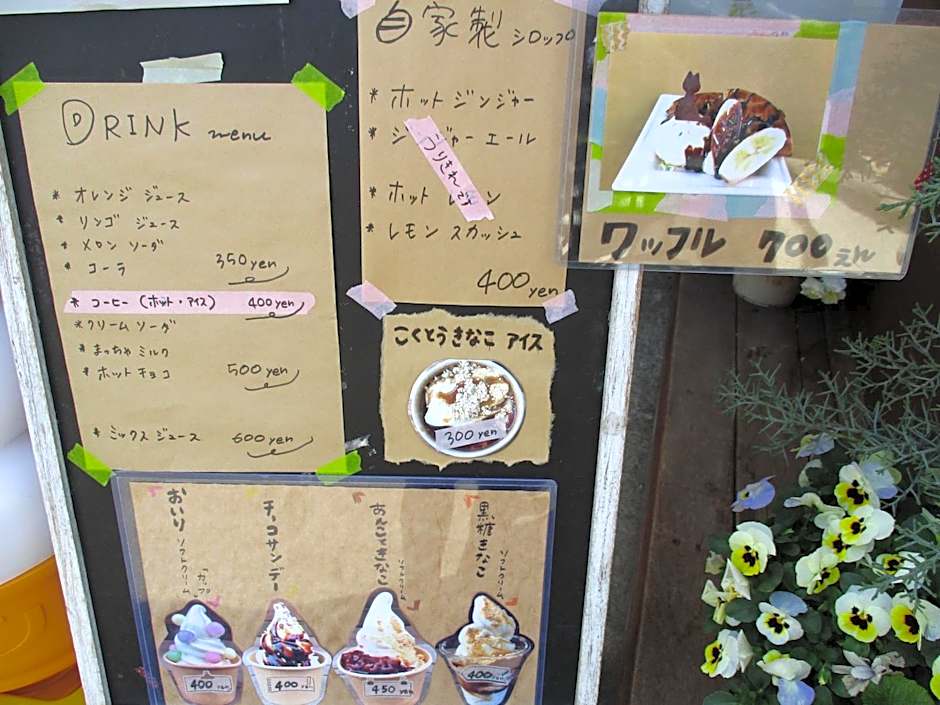 DRINK menu
* オレンジ ジュース
* リンゴ ジュース
* メロン ソーダ
* コーラ 350yen
* コーヒー (ホット・アイス) 400yen
* クリーム ソーダ
* まっちゃ ミルク
* ホット チョコ 500yen
* ミックス ジュース 600yen
自家製 シロップ
* ホット ジンジャー
* ジンジャー エール
うりきれ
* ホット レモン
* レモン スカッシュ
400yen
ワッフル 700えん
こくとうきなこ アイス
300yen
おいり ソフトクリーム
「カップ」
400yen
チョコサンデー
400yen
あんこときなこ
ソフトクリーム
450yen
黒糖きなこ
ソフトクリーム
400yen